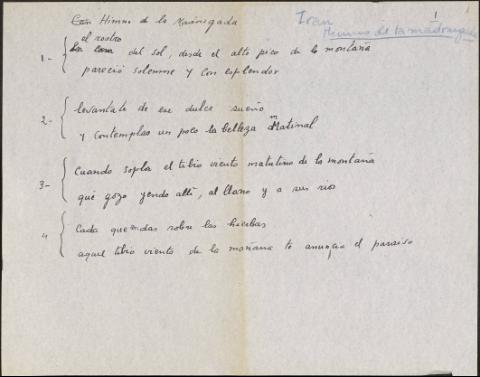 Himno de la Madrugada
Iran
Himno de la madrugada
1
el rostro
1- La cara del sol, desde el alto pico de la montaña
pareció solemne y con esplendor
2- levantate de ese dulce sueño
y contemplas un poco la belleza matinal
3- Cuando sopla el tibio viento matutino de la montaña
que gozo yendo allí, al llano y a sus rios
4 Cada quemadas sobre las hierbas
aquel tibio viento de la mañana te anuncia el paraiso